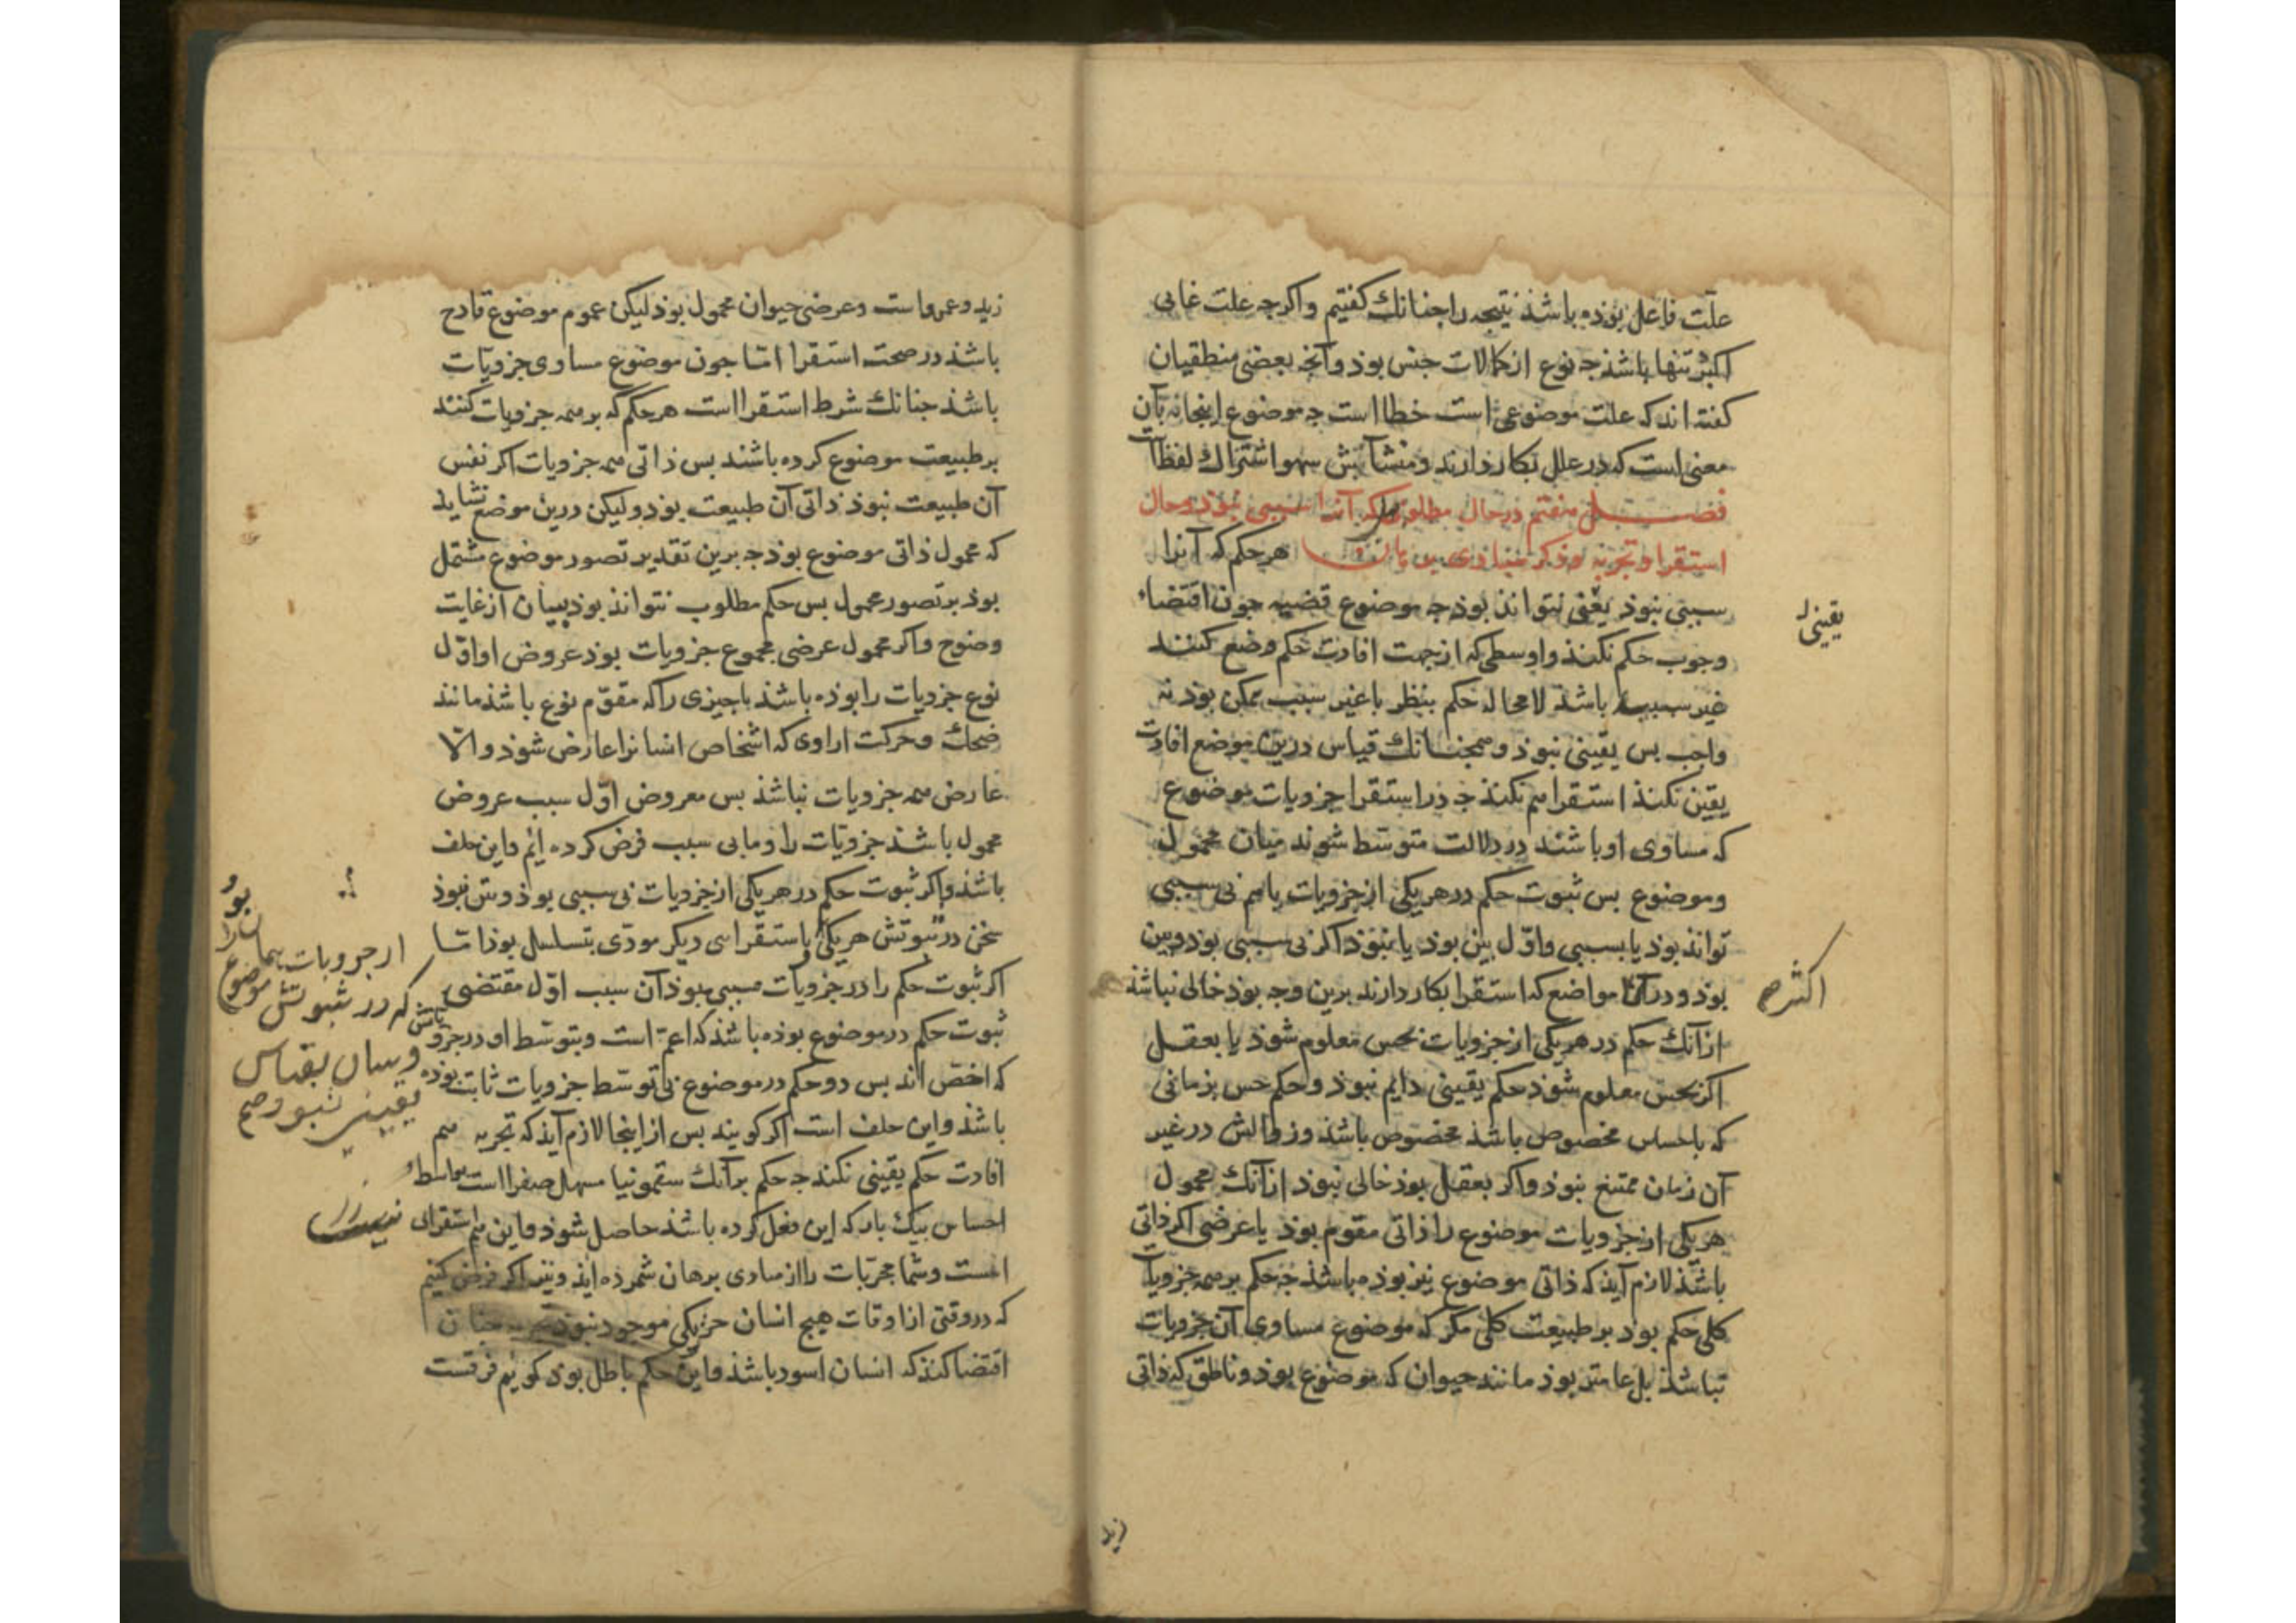 علّت فاعل بوذه باشذ نتیجه را جنانك كفتیم واكرجه علت غائی
اكثر تنها باشذ جه نوع از كمالات جنس بوذ وآنجه بعضی منطقیان
كفته اند كه علت موضوعی است خطا است جه موضوع اینجا نه بآن
معنی است كه در علل بكار دارند و منشأش سهو اشتراك لفظ است
فصـــل هفتم در حال مطلوبی كه آنرا سببی نبوذ وحال
استقرا وتجربه وذكر مبادی برهان هر حكم كه آنرا
سببی نبوذ یقینی نتواند بوذ جه موضوع قضیه جون اقتضاء
وجوب حكم نكند واوسطی كه از جهت افادت حكم وضع كنند
غیر سبب باشذ لامحاله حكم بنظر با غیر سبب ممكن بوذ نه
واجب بس یقینی نبوذ وهمجنانك قیاس درین موضع افادت
یقین نكند استقرا هم نكند جه در استقرا جزویات موضوع
كه مساوی او باشند در دلالت متوسط شوند میان محمول
وموضوع بس ثبوت حكم در هر یكی از جزویات یا هم بی سببی
تواند بوذ یا بسببی واوّل بین بوذ یا نبوذ اكر بی سببی بوذ وبین
بوذ ودر آن مواضع كه استقرا بكار دارند برین وجه بوذ خالی نباشذ
از آنك حكم در هر یكی از جزویات بحس معلوم شوذ یا بعقل
اكر بحس معلوم شوذ حكم یقینی دایم نبوذ وحكم حس بزمانی
كه باحساس مخصوص باشذ مخصوص باشذ وزوالش در غیر
آن زمان ممتنع نبوذ واكر بعقل بوذ خالی نبوذ از آنك محمول
هر یكی از جزویات موضوع را ذاتی مقوم بوذ یا عرضی اكر ذاتی
باشذ لازم آید كه ذاتی موضوع نیز بوذه باشذ جه حكم بر همه جزویات
كلی حكم بوذ بر طبیعت كلی مكر كه موضوع مساوی آن جزویات
نباشذ بل عامتر بوذ مانند حیوان كه موضوع بوذ وناطق كه ذاتی
یقینی
اكثر
زید
زید وعمرو است وعرضی حیوان محمول بوذ لیكن عموم موضوع قادح
باشذ در صحت استقرا امّا جون موضوع مساوی جزویّات
باشذ جنانك شرط استقرا است هر حكم كه بر همه جزویات كنند
بر طبیعت موضوع كرده باشند بس ذاتی همه جزویات اكر نفس
آن طبیعت نبوذ ذاتی آن طبیعت بوذ ولیكن درین موضع نشاید
كه محمول ذاتی موضوع بوذ جه برین تقدیر تصور موضوع مشتمل
بوذ بر تصور محمول بس حكم مطلوب نتواند بوذ ببیان از غایت
وضوح واكر محمول عرضی مجموع جزویات بوذ عروض او اوّل
نوع جزویات را بوذه باشذ یا جیزی را كه مقوّم نوع باشذ مانند
ضحك وحركت ارادی كه اشخاص انسانرا عارض شوذ والّا
عارض همه جزویات نباشذ بس معروض اوّل سبب عروض
محمول باشذ جزویّات را وما بی سبب فرض كرده ایم واین خلف
باشذ واكر ثبوت حكم در هر یكی از جزویات بی سببی بوذ وبین نبوذ
سخن در ثبوتش هر یكی باستقرای دیكر مودّی بتسلسل بوذ امّا
اكر ثبوت حكم را در جزویات سببی بوذ آن سبب اوّل مقتضی
ثبوت حكم در موضوع بوذه باشذ كه اعمّ است وبتوسط او در جزویاتش
كه اخصّ اند بس دو حكم در موضوع بی توسّط جزویات ثابت بوذه
باشذ واین خلف است اكر كویند بس از اینجا لازم آید كه تجربه هم
افادت حكم یقینی نكند جه حكم برآنك سقمونیا مسهل صفرا است بواسطهٔ
احساس بیك بار كه این فعل كرده باشذ حاصل شوذ واین هم استقرای
است وشما مجرّبات را از مبادی برهان شمرده اید ونیز اكر فرض كنیم
كه در وقتی از اوقات هیج انسان جز یكی موجود نبوذ تجربه جنان
اقتضا كند كه انسان اسود باشذ واین حكم باطل بوذ كوئیم فرقست
از جزویات
كه در ثبوتش موضوع
وبیان بقیاس
یقینی نبوذ